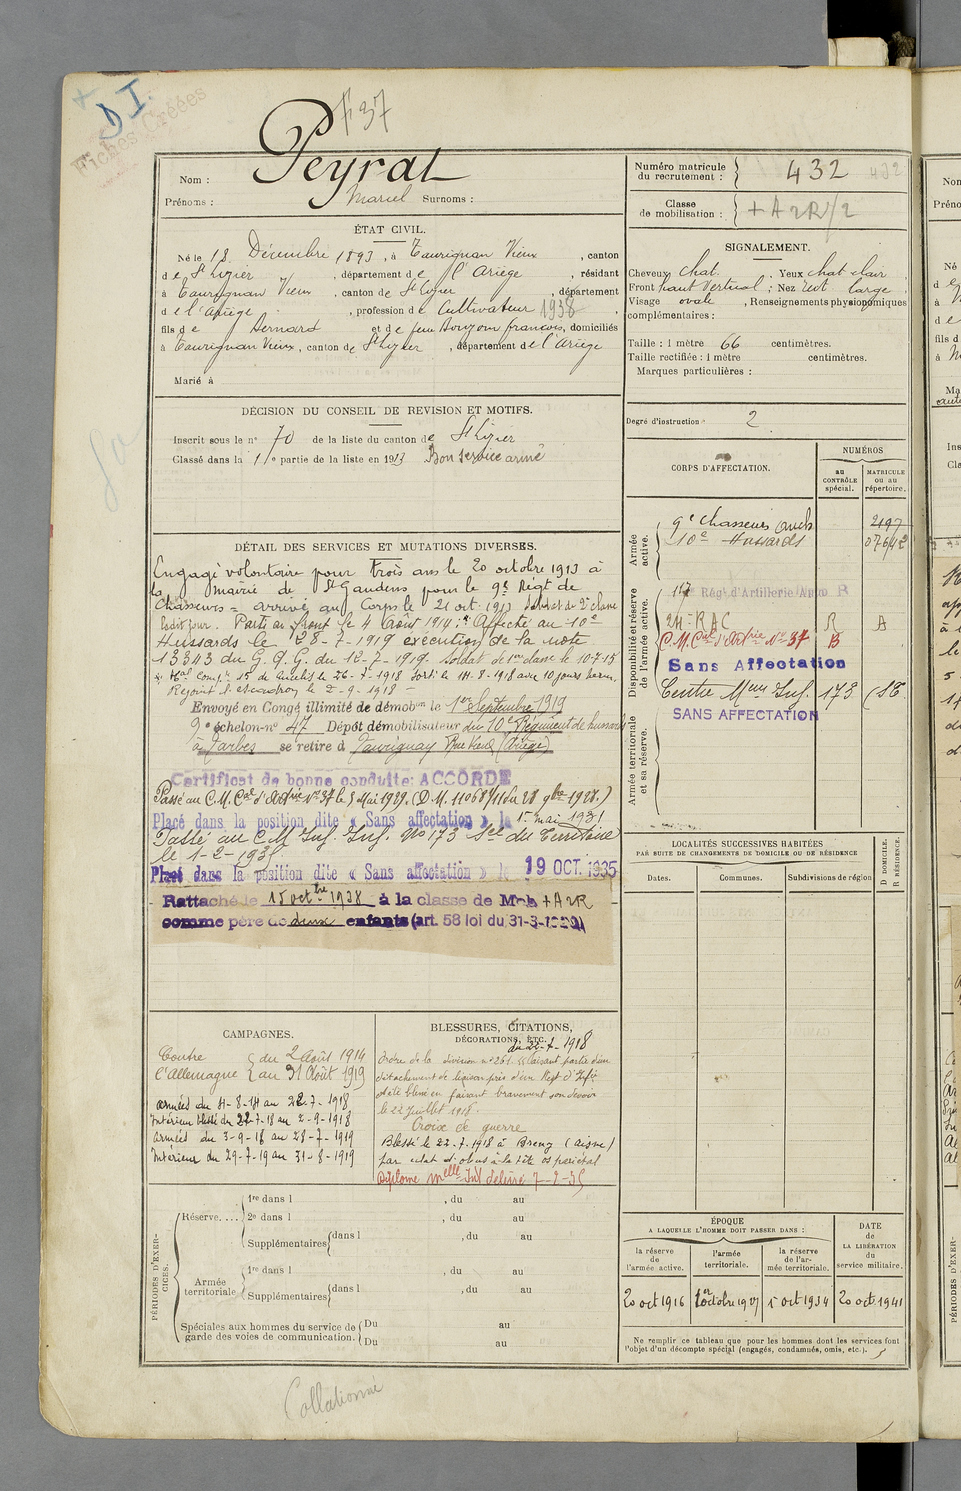 D I.
Fiches Créées
F 37
Nom : Peyrat
Prénoms : Marcel Surnoms :
Numéro matricule du recrutement : 432
Classe de mobilisation : + A 2R/2
ÉTAT CIVIL.
Né le 13 Décembre 1893, à Taurignan Vieux, canton
de St Lizier, département de l'Ariège, résidant
à Taurignan Vieux, canton de St Lizier, département
de l'Ariège, profession de Cultivateur 1938
fils de Bernard et de feue françois, domiciliés
à Taurignan Vieux, canton de St Lizier, département de l'Ariège
Marié à
SIGNALEMENT.
Cheveux chat. Yeux chat clair
Front haut vertical ; Nez rect large
Visage ovale, Renseignements physionomiques
complémentaires :
Taille : 1 mètre 66 centimètres.
Taille rectifiée : 1 mètre centimètres.
Marques particulières :
DÉCISION DU CONSEIL DE REVISION ET MOTIFS.
Inscrit sous le n° 70 de la liste du canton de St Lizier
Classé dans la 1re partie de la liste en 1913 Bon service armé
Degré d'instruction : 2
CORPS D'AFFECTATION.
NUMÉROS
au CONTRÔLE spécial.
MATRICULE OU AU RÉPERTOIRE.
Armée active.
9e Chasseurs Auch 2197
10e Hussards 07642
Disponibilité et réserve de l'armée active.
117 Rég. d'Artillerie Auto R
24e RAC R A
C.M. Cal d'Artrie No 37 B
Sans Affectation
Centre Mm Inf. 173 (S.T.
SANS AFFECTATION
Armée territoriale et sa réserve.
DÉTAIL DES SERVICES ET MUTATIONS DIVERSES.
Engagé volontaire pour trois ans le 20 octobre 1913 à
la mairie de St Gaudens pour le 9e Régt de
Chasseurs = arrivé au Corps le 21 oct. 1913 soldat de 2e classe
ledit jour. Parti au front le 4 Août 1914. Affecté au 10e
Hussards le 28-7-1919 exécution de la note
13343 du G.Q.G. du 12-7-1919. Soldat de 1re classe le 10-7-15
Hal comp. 15 de le 26-7-1918 Sorti le 14-8-1918 avec 10 jours
Rejoint l'escadron le 2-9-1918
Envoyé en Congé illimité de démobon le 1er Septembre 1919
9e échelon n° 47 Dépôt démobilisateur du 10e Régiment de hussards
à Tarbes se retire à Taurignan Vieux (Ariège)
Certificat de bonne conduite : ACCORDÉ
Passé au C.M. Cal d'Artrie No 37 le 5 Mai 1929. (D.M. 11068 1/11 du 28 9bre 1928.)
Placé dans la position dite « Sans affectation » le 1er mai 1931
Passé au C.M. Inf. No 173 Sal du Territoire
le 1-2-1935
Placé dans la position dite « Sans affectation » le 19 OCT. 1935
Rattaché le 15 octbre 1938 à la classe de Mob + A2R
comme père de deux enfants (art. 58 loi du 31-3-1928)
LOCALITÉS SUCCESSIVES HABITÉES
PAR SUITE DE CHANGEMENTS DE DOMICILE OU DE RÉSIDENCE
Dates.
Communes.
Subdivisions de région
D DOMICILE. R RÉSIDENCE.
CAMPAGNES.
Contre du 2 Août 1914
l'Allemagne au 31 Août 1919
Armées du 4-8-14 au 22-7-1918
Intérieur blessé du 22-7-18 au 2-9-1918
Armées du 3-9-18 au 28-7-1919
Intérieur du 29-7-19 au 31-8-1919
BLESSURES, CITATIONS, DÉCORATIONS, ETC.
du 22-7-1918
Ordre de la division n° 261. faisant partie d'un
détachement de liaison près d'un Régt d'Infie
a été blessé en faisant bravement son devoir
le 22 Juillet 1918.
Croix de guerre
Blessé le 22-7-1918 à Breny (Aisne)
par éclat d'obus à la tête os pariétal
Diplôme melle Inf délivré 7-2-35
PÉRIODES D'EXERCICES.
Réserve....
1re dans l , du au
2e dans l , du au
Supplémentaires dans l , du au
Armée territoriale
1re dans l , du au
Supplémentaires dans l , du au
Spéciales aux hommes du service de garde des voies de communication.
Du au
Du au
ÉPOQUE
A LAQUELLE L'HOMME DOIT PASSER DANS :
la réserve de l'armée active.
l'armée territoriale.
la réserve de l'armée territoriale.
DATE DE LA LIBÉRATION du service militaire.
20 oct 1916
1er octobre 1927
1er oct 1934
20 oct. 1941
Ne remplir ce tableau que pour les hommes dont les services font
l'objet d'un décompte spécial (engagés, condamnés, omis, etc.).
Collationné